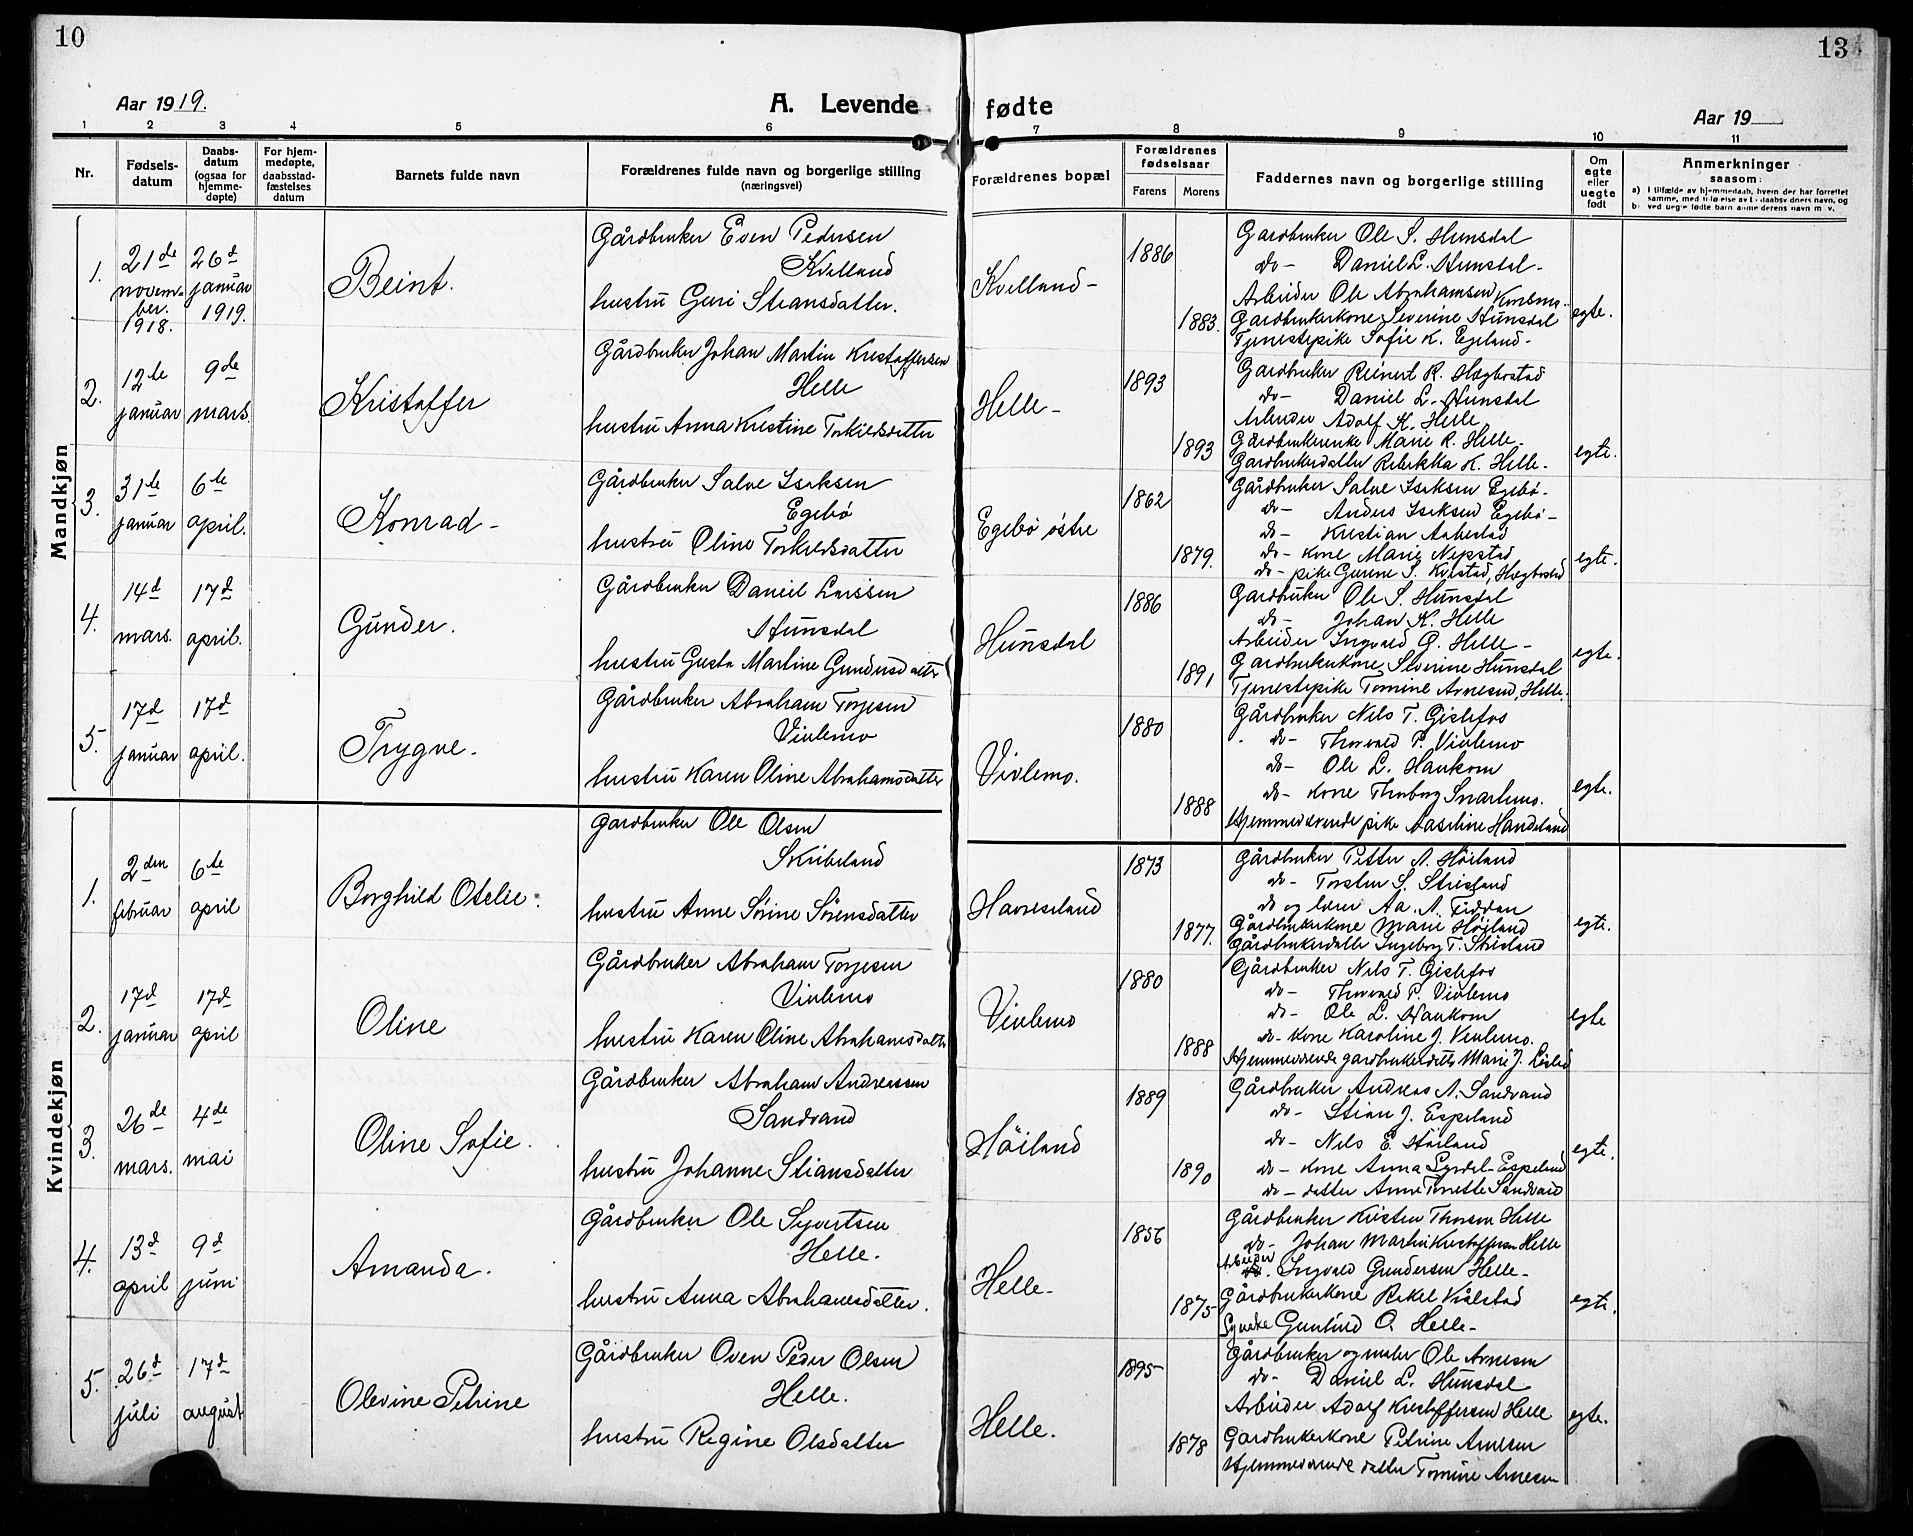 10
13
Aar 1919.
A. Levende fødte
Aar 19
1 2 3 4 5 6 7 8 9 10 11
Nr.
Fødsels-
datum
Daabs-
datum
(ogsaa for
hjemme-
døpte)
For hjem-
medøpte,
daabsstad-
fæstelses
datum
Barnets fulde navn
Forældrenes fulde navn og borgerlige stilling
(næringsvei)
Forældrenes bopæl
Forældrenes
fødselsaar
Farens Morens
Faddernes navn og borgerlige stilling
Om
egte
eller
uegte
født
Anmerkninger
saasom:
Mandkjøn
1.
21de
novem-
ber.
1918.
26d
januar
1919.
Beint.
Gårdbruker Even Pedersen
Kvelland
hustru Guri Stiansdatter.
Kvelland-
1886
1883.
Gardbruker Ole S. Hunsdal
do- Daniel L. Hunsdal-
Arbeider Ole Abrahamsen
Gardbrukerkone Severine Hunsdal
Tjenestepike Sofie K. Egeland-
egte.
2.
12te
januar
9de
mars.
Kristoffer
Gårdbruker Johan Martin Kristoffersen
Helle
hustru Anna Kristine Torkildsdatter
Helle-
1893
1893
Gardbruker Reinert R. Hægbostad
do- Daniel L. Hunsdal
Arbeider Adolf K. Helle
Gårdbrukerenke Marie R. Helle-
Gardbrukerdatter Rebekka K. Helle-
egte.
3.
31te
januar
6te
april.
Konrad-
Gårdbruker Salve Isaksen
Egebø
hustru Oline Torkildsdatter
Egebø østre
1862
1879.
Gårdbruker Salve Isaksen Egebø-
do- Anders Isaksen Egebø-
do- Kristian
do- kone Marie Nepstad
do- pike Gunne S. Hægbostad
egte.
4.
14d
mars.
17d
april.
Gunder.
Gårdbruker Daniel Larssen
Hunsdal
hustru Gusta Martine Gundersdatter
Hunsdal
1886
1891
Gardbruker Ole S. Hunsdal
do- Johan K. Helle
Arbeider Ingvald G. Helle-
Gardbrukerkone Severine Hunsdal
Tjenestepike Tomine Arnesen, Helle.
egte.
5.
17d
januar
17d
april.
Trygve.
Gårdbruker Abraham Torjesen
Vivlemo
hustru Karen Oline Abrahamsdatter
Vivlemo.
1880
1888
Gårdbruker Nils T. Gislefos
do- Thorvald P. Vivlemo
do- Ole L. Haukom
do- kone Thorborg Snartemo.
Hjemmeværende pike Aaseline Handeland
egte.
Kvindekjøn
1.
2den
februar
6te
april
Borghild Otelie.
Gardbruker Ole Olsen
Skibeland
hustru Anne Sørine Sørensdatter
Havreseland
1873
1877.
Gårdbruker Petter N. Høiland
do- Torsten S. Strisland
do og lærer Aa. N. Fiddan
Gårdbrukerkone Marie Høiland
Gårdbrukerdatter Ingeborg T. Strisland
egte.
2.
17d
januar
17d
april
Oline
Gårdbruker Abraham Torjesen
Vivlemo
hustru Karen Oline Abrahamsdatter
Vivlemo
1880
1888
Gårdbruker Nils T. Gislefos
do- Thorvald P. Vivlemo
do- Ole L. Haukom
do- kone Karoline J. Vivlemo.
Hjemmeværende gardbrukerdatter Marie J.
egte
3.
26de
mars.
4de
mai
Oline Sofie.
Gårdbruker Abraham Andreassen
Sandvand
hustru Johanne Stiansdatter
Høiland
1889
1890
Gårdbruker Andreas A. Sandvand
do- Stian J. Espeland
do- Nils E. Høiland
do- kone Anna Lyrdal-Espeland
do- datter Anne Tonette Sandvand
egte.
4.
13d
april
9d
juni
Amanda.
Gårdbruker Ole Syvertsen
Helle.
hustru Anna Abrahamsdatter.
Helle-
1856
1875-
Gårdbruker Kristen Thorsen Helle
do- Johan Martin Kristoffersen Helle
Arbeider Ingvald Gundersen Helle-
Gårdbrukerkone Rakel Kvålstad
Syerske Gunhild O. Helle-
egte.
5.
26d
juli
17d
august
Olevine Petrine
Gårdbruker Oven Peder Olsen
Helle.
hustru Regine Olsdatter
Helle.
1895-
1878
Gårdbruker og maler Ole Arnesen
do- Daniel L. Hunsdal
Arbeider Adolf Kristoffersen Helle
Gardbrukerkone Petrine Arnesen
Hjemmeværende datter Tomine Arnesen
egte.